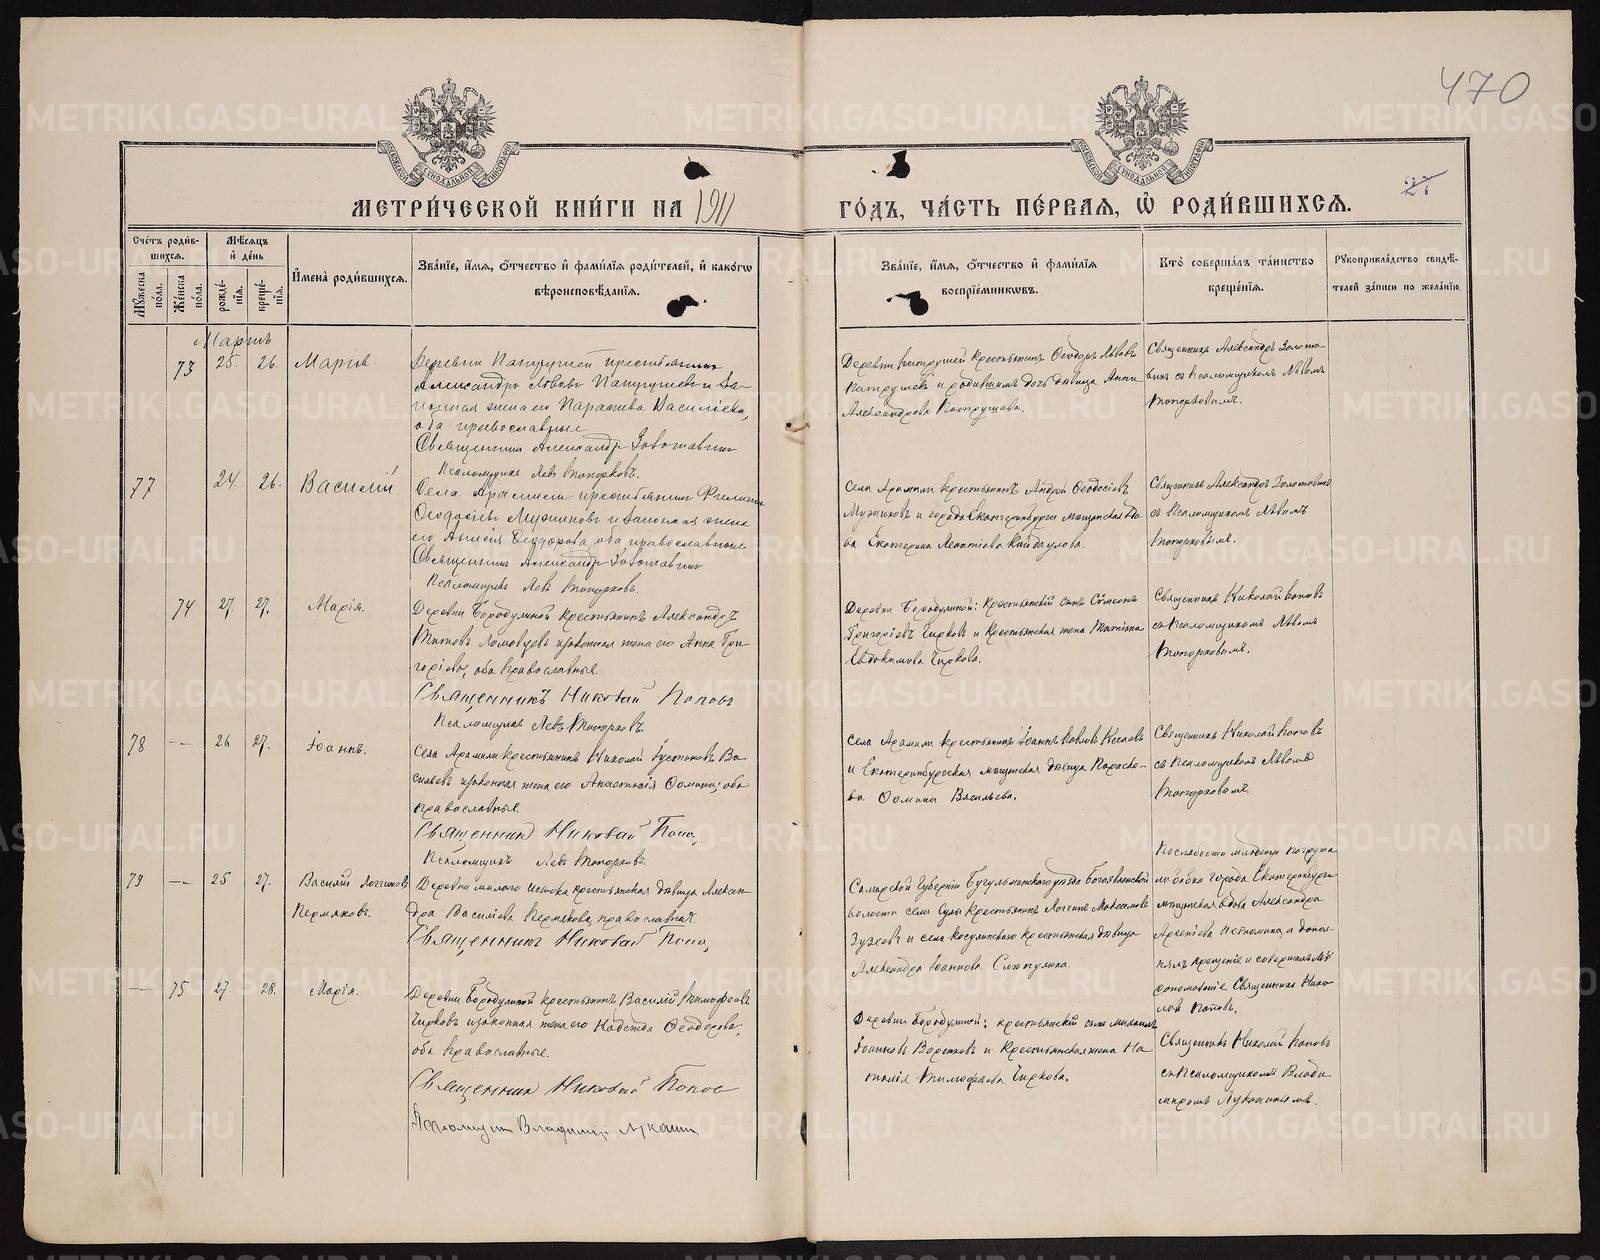 470
27
МЕТРИ́ЧЕСКОЙ КНИ́ГИ НА 1911
ГО́ДЪ, ЧА́СТЬ ПЕ́РВАЯ, Ѡ҆ РОДИ́ВШИХСЯ.
Сче́тъ роди́в-
шихся.
Мꙋ́жеска по́ла.
Же́нска по́ла.
Мѣ́сяцъ
и҆ де́нь
рожде́-
нїя.
креще́-
нїя.
И҆мена̀ роди́вшихся.
Зва́нїе, и҆́мя, ѻ҆́тчество и҆ фами́лїя роди́телей, и҆ како́гѡ
вѣроисповѣ́данїя.
Зва́нїе, и҆́мя, ѻ҆́тчество и҆ фами́лїя
воспрїе́мникѡвъ.
Кто̀ соверша́лъ та́инство
креще́нїя.
Рꙋкоприкла́дство свидѣ́-
телей за́писи по жела́нїю.
Мартъ
73 25. 26. Марія.
Деревни Патрушей крестьянинъ
Александръ Львовъ Патрушевъ и за-
конная жена его Параскева Васильева,
оба православные
Священникъ Александр Золотавин
Псаломщикъ Левъ Топорковъ.
Деревни Патрушей крестьянинъ Ѳеодоръ Львовъ
Патрушевъ и родившихъ дочь дѣвица Анна
Александрова Патрушева.
Священникъ Александръ Золота-
винъ съ псаломщикомъ Львомъ
Топорковымъ.
77 24. 26. Василій.
Села Арамили крестьянинъ Филиппъ
Ѳеодосіевъ Мужиковъ и законная жена
его Анисія Ѳеодорова, оба православные
Священникъ Александр Золотавин
Псаломщикъ Левъ Топорковъ.
Села Арамили крестьянинъ Андрей Ѳеодосіевъ
Мужиковъ и города Екатеринбурга мѣщанская вдо-
ва Екатерина Леонтіева Кайдаулова.
Священникъ Александръ Золотавинъ
съ псаломщикомъ Львомъ
Топорковымъ.
74 27. 27. Марія.
Деревни Бородулиной крестьянинъ Александръ
Титовъ Ломовцевъ и законная жена его Анна Гри-
горіева, оба православные.
Священникъ Николай Попов
Псаломщикъ Левъ Топорковъ.
Деревни Бородулиной: крестьянскій сынъ Сѵмеонъ
Григоріевъ Чирковъ и крестьянская жена Татіана
Евдокимова Чиркова.
Священникъ Николай Поповъ
съ псаломщикомъ Львомъ
Топорковымъ.
78 — 26 27. Іоаннъ.
Села Арамили крестьянинъ Николай Іустиновъ Ва-
сильевъ и законная жена его Анастасія Ѳомина; оба
православные.
Священникъ Николай Попов
Псаломщикъ Левъ Топорковъ.
Села Арамили крестьянинъ Іоаннъ
и Екатеринбургская мѣщанская дѣвица Параске-
ва Ѳомина Васильева.
Священникъ Николай Поповъ
съ псаломщикомъ Львомъ
Топорковымъ.
79 — 25 27. Василій Логгиновъ
Пермяковъ.
Деревни малаго Истока крестьянская дѣвица Алексан-
дра Василіева Пермякова, православная.
Священникъ Николай Попов
Самарской губерніи Бугульминскаго уѣзда Богоявленской
волости села крестьянинъ Логгинъ Максимовъ
и села Косулинскаго крестьянская дѣвица
Александра Іоаннова
По слабости младенца погружа-
ла бабка города Екатеринбурга
мѣщанская вдова Александра
Арсеніева Истомина, а допол-
нялъ крещеніе и совершалъ мѵ-
ропомазаніе Священникъ Нико-
лай Поповъ.
— 75 27. 28. Марія.
Деревни Бородулиной крестьянинъ Василій Тимоѳеевъ
Чирковъ и законная жена его Надежда Ѳеодорова,
оба православные.
Священник Николай Попов
Псаломщик Владимир Лукани
Деревни Бородулиной: крестьянскій сынъ Михаилъ
Іоанновъ Воротковъ и крестьянская жена На-
талія Тимоѳеева Чиркова.
Священникъ Николай Поповъ
съ псаломщикомъ Влади-
миромъ Луканинымъ.
METRIKI.GASO-URAL.RU